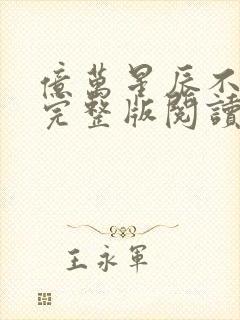 億萬星辰不
完整版閱讀
王永軍